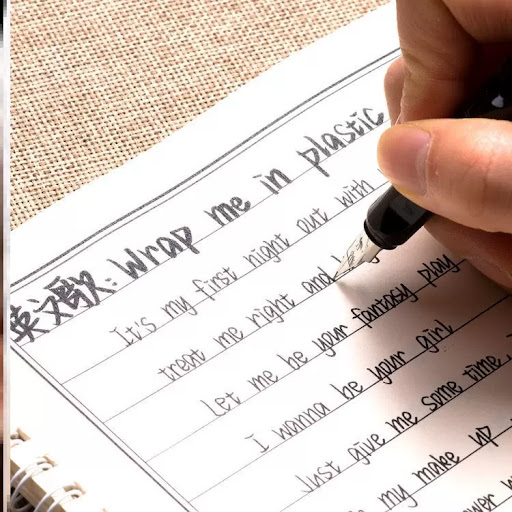 英文歌: Wrap me in plastic
It's my first night out with
treat me right and
Let me be your fantasy play
I wanna be your girl
Just give me some time
my make up